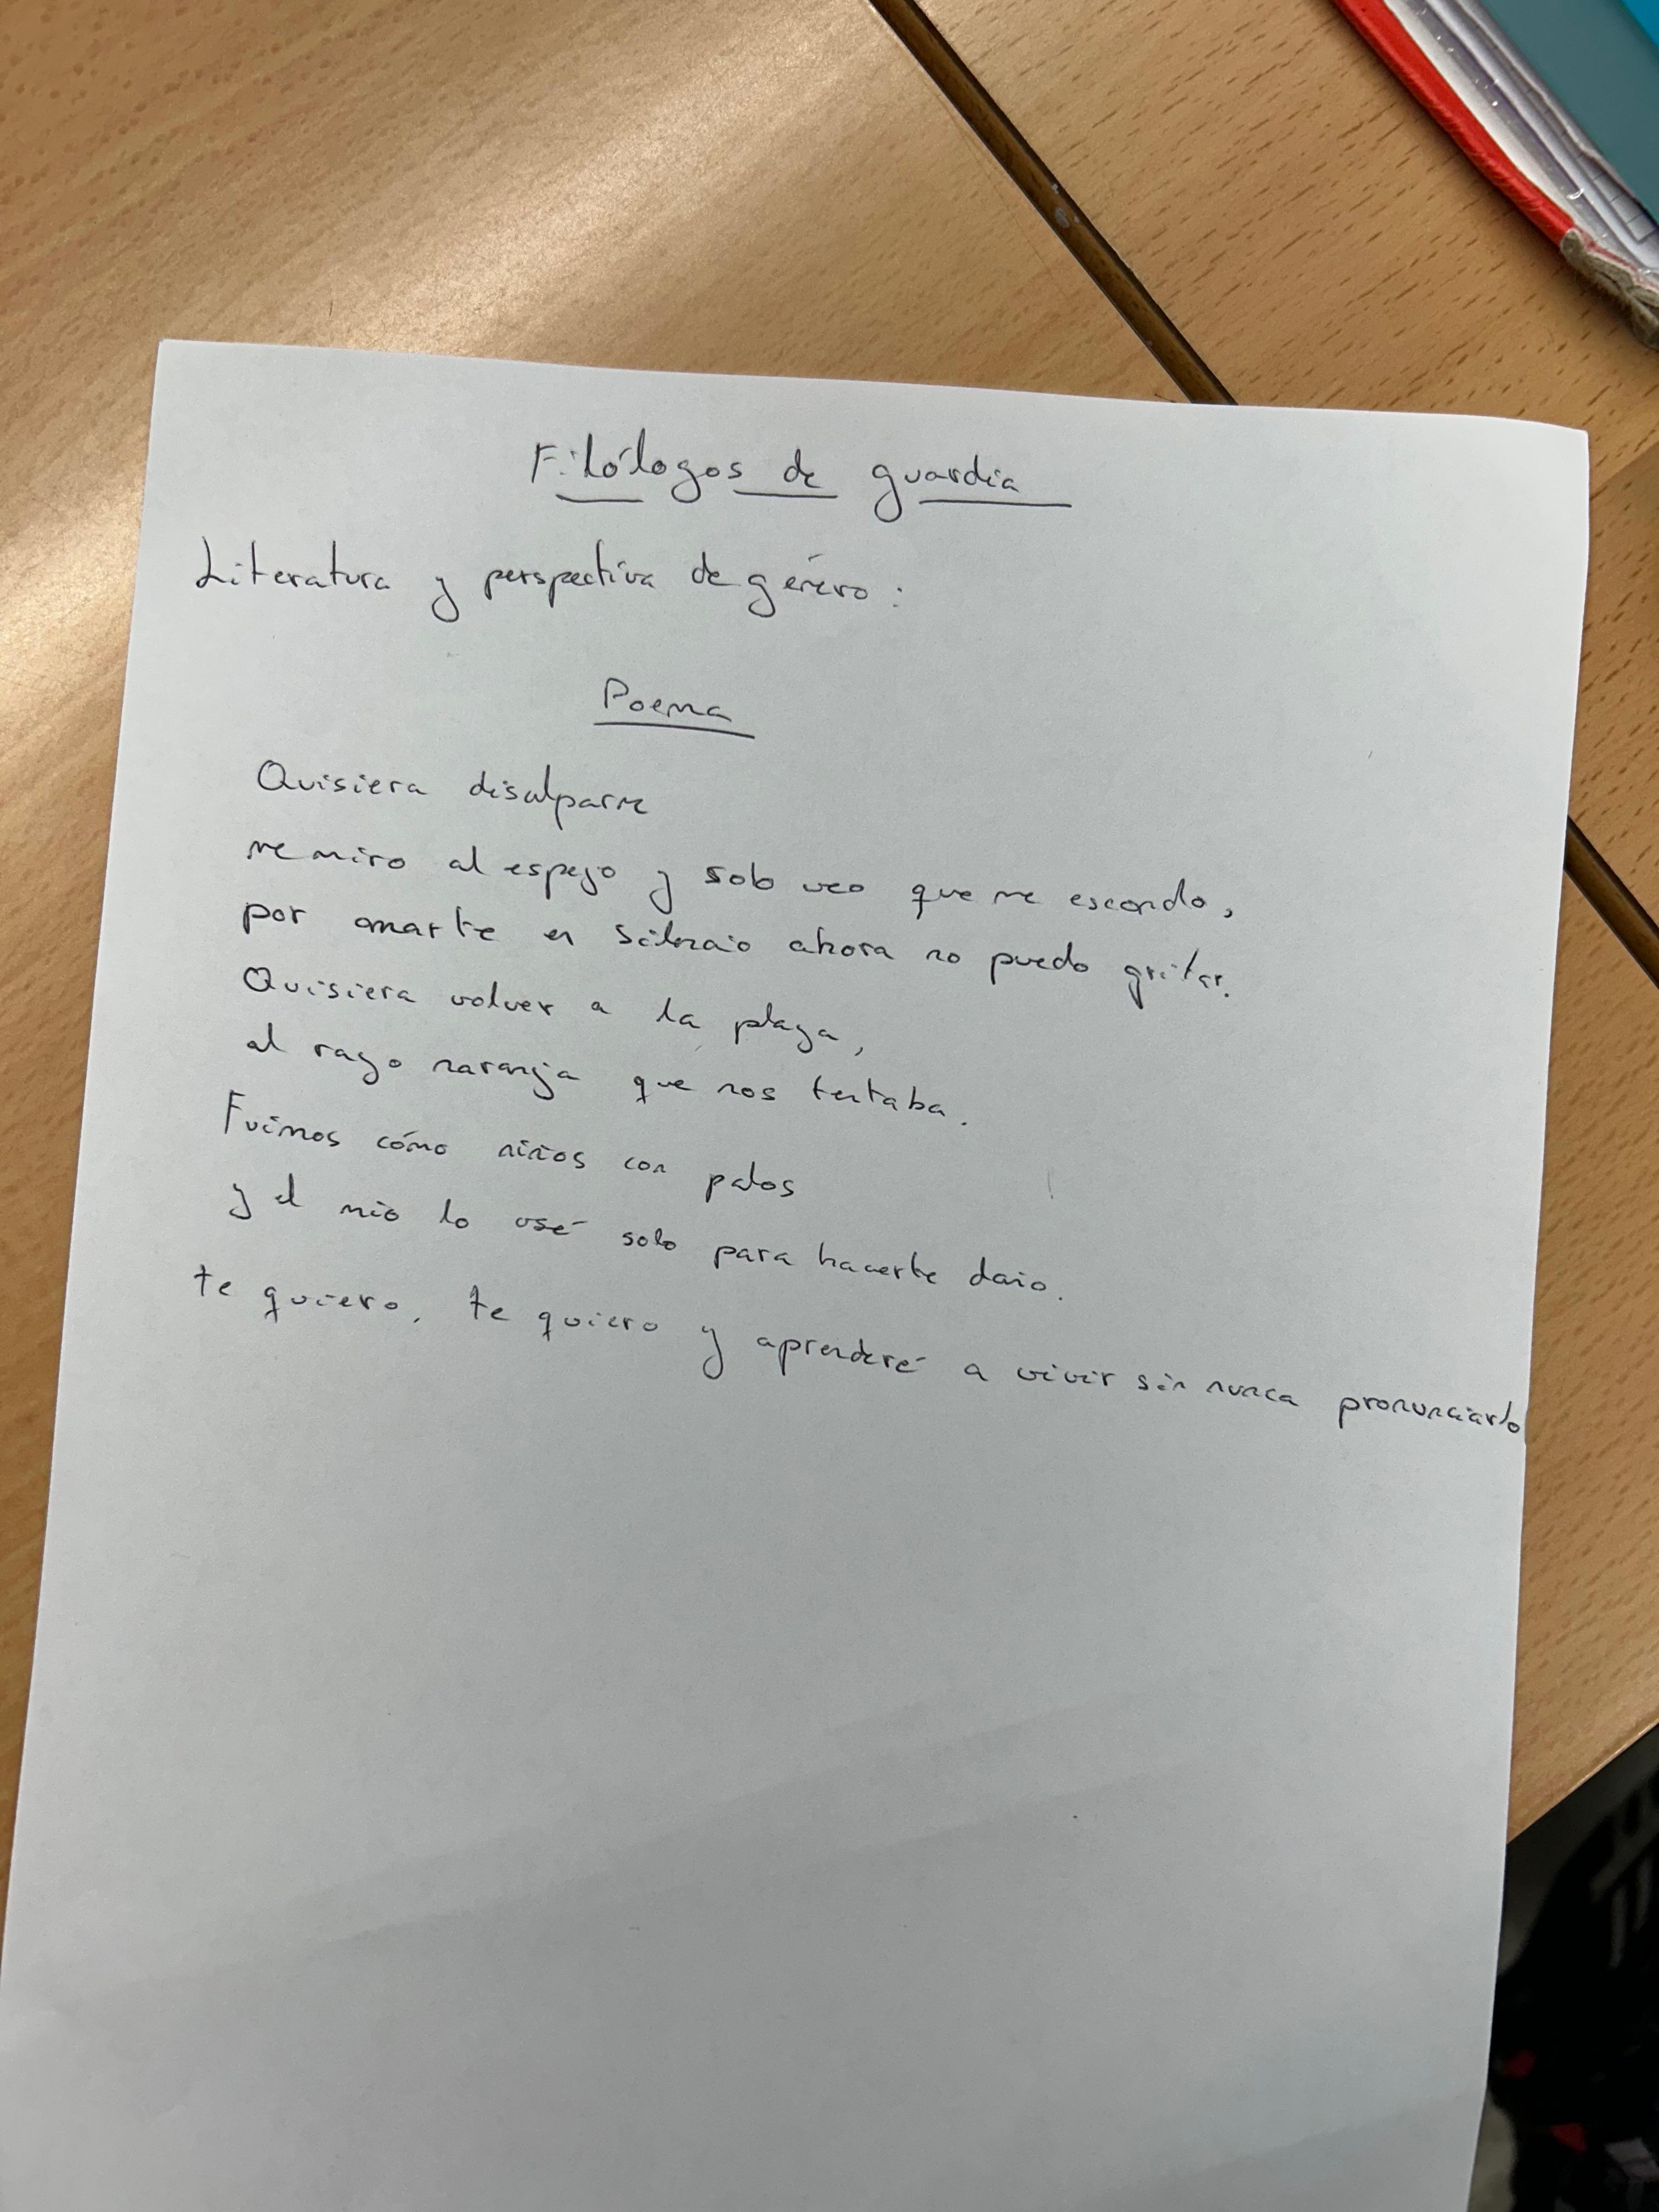 Filólogos de guardia
Literatura y perspectiva de género:
Poema
Quisiera disculparme
me miro al espejo y solo veo que me escondo,
por amarte en silencio ahora no puedo gritar.
Quisiera volver a la playa,
al rayo naranja que nos tentaba.
Fuimos cómo niños con palos
y el mío lo usé solo para hacerte daño.
te quiero, te quiero y aprenderé a vivir sin nunca pronunciarlo